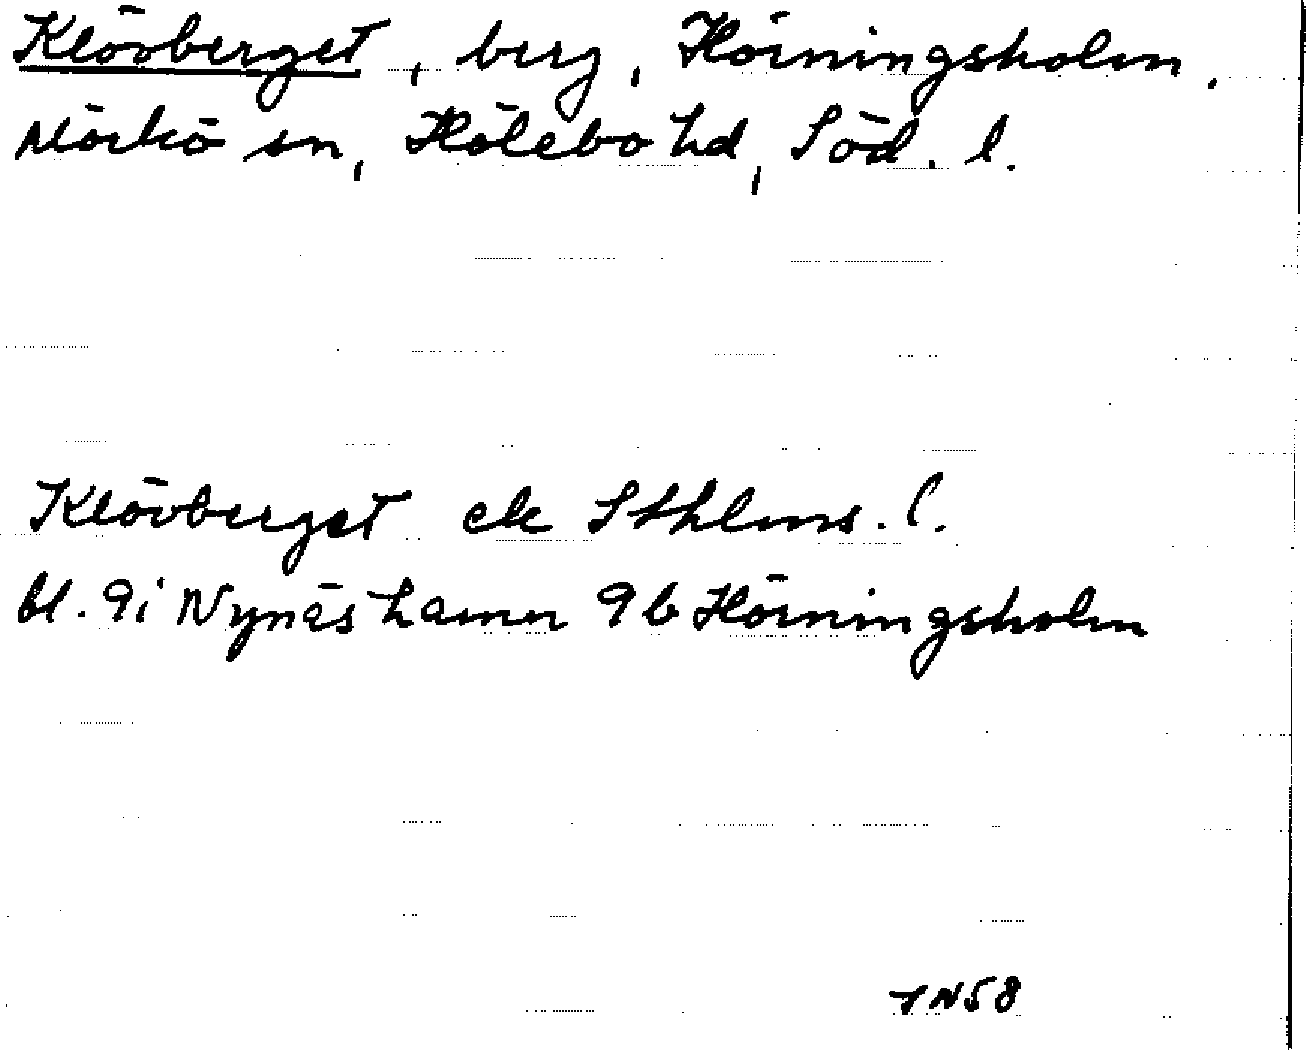 Klövberget, berg, Hörningsholm,
Mörkö sn, Hölebo hd, Söd. l.
Klövberget ek Sthlms. l.
bl. 9i Nynäshamn 9b Hörningsholm
JN58